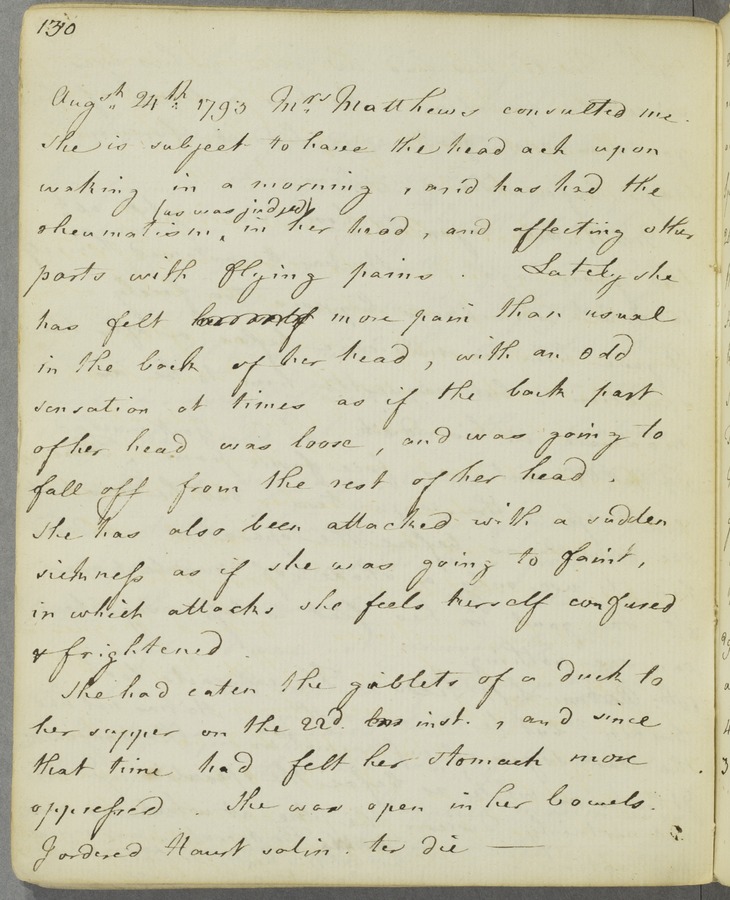 130
Augst. 24th. 1793 Mrs. Matthews consulted me.
She is subject to have the head ach upon
waking in a morning, and has had the
(as was judged)
rheumatism, in her head, and affecting other
parts with flying pains. Lately she
has felt more pain than usual
in the back of her head, with an odd
sensation at times as if the back part
of her head was loose, and was going to
fall off from the rest of her head.
She has also been attacked with a sudden
sickness as if she was going to faint,
in which attacks she feels herself confused
& frightened.
She had eaten the giblets of a duck to
her supper on the 22d. inst., and since
that time had felt her stomach more
oppressed. She was open in her bowels.
I ordered Haust salin. ter die —